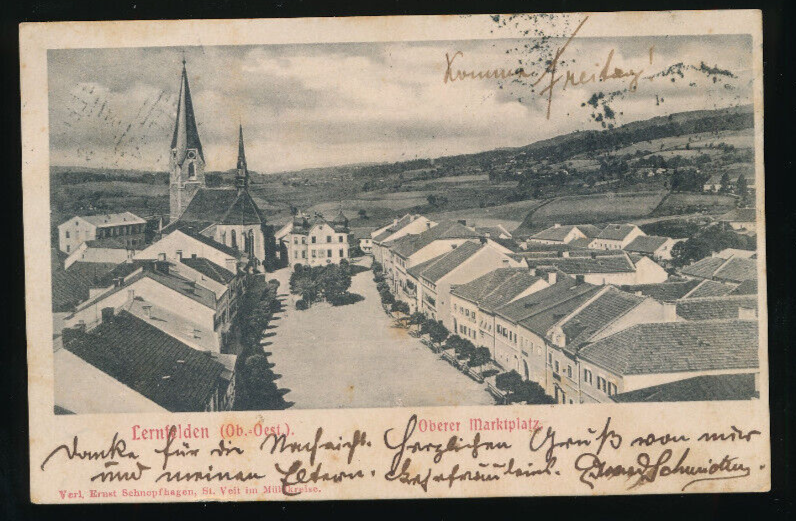 Komme Freitag!
Lernfelden (Ob.-Oest.).
Oberer Marktplatz.
Danke für die Nachricht. Herzlichen Gruß von mir
und meinen Eltern.
Verl. Ernst Schnopfhagen, St. Veit im Mühlkreise.